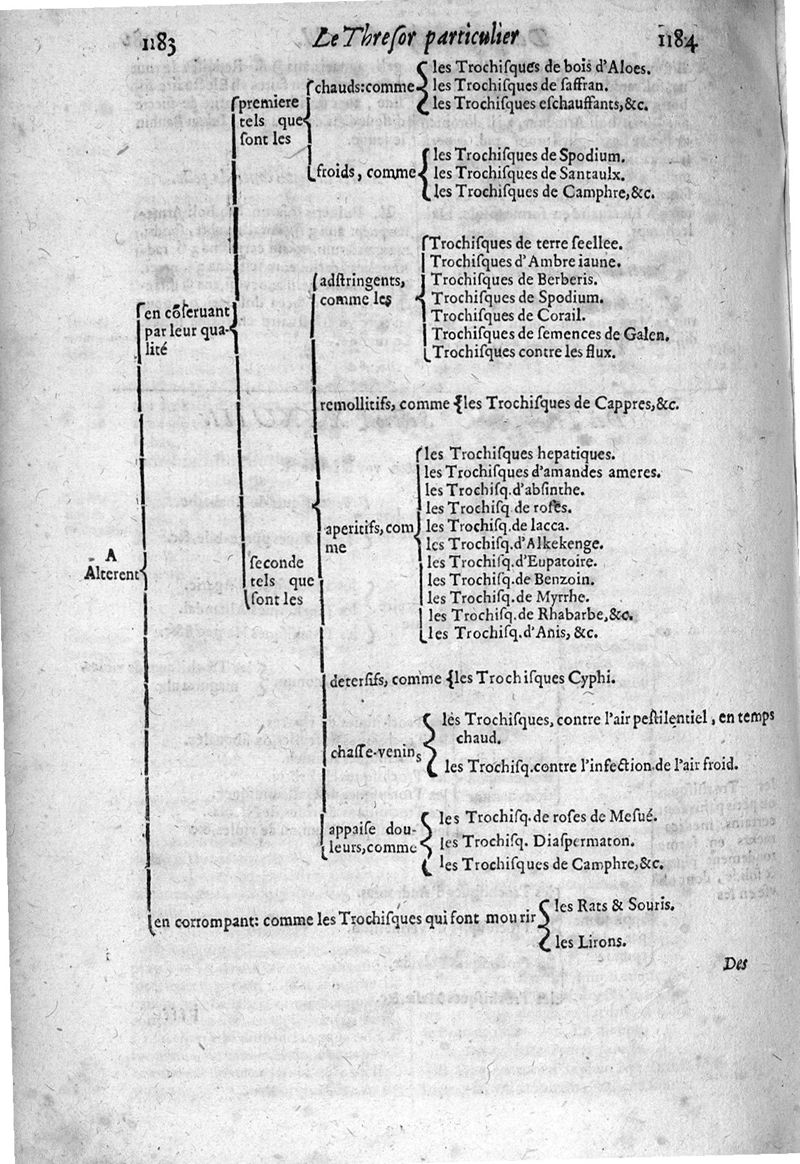 1183 Le Threſor particulier 1184
A
Alterent
en cõſeruant
par leur qua-
lité
premiere
tels que
ſont les
chauds: comme
les Trochiſques de bois d'Aloes.
les Trochiſques de ſaffran.
les Trochiſques eſchauffants, &c.
froids, comme
les Trochiſques de Spodium.
les Trochiſques de Santaulx.
les Trochiſques de Camphre, &c.
seconde
tels que
ſont les
adſtringents,
comme les
Trochiſques de terre ſeellee.
Trochiſques d'Ambre iaune.
Trochiſques de Berberis.
Trochiſques de Spodium.
Trochiſques de Corail.
Trochiſques de ſemences de Galen.
Trochiſques contre les flux.
remollitifs, comme {les Trochiſques de Cappres, &c.
aperitifs, com
me
les Trochiſques hepatiques.
les Trochiſques d'amandes ameres.
les Trochiſq. d'abſinthe.
les Trochiſq. de roſes.
les Trochiſq. de lacca.
les Trochiſq. d'Alkekenge.
les Trochiſq. d'Eupatoire.
les Trochiſq. de Benzoin.
les Trochiſq. de Myrrhe.
les Trochiſq. de Rhabarbe, &c.
les Trochiſq. d'Anis, &c.
deterſifs, comme {les Trochiſques Cyphi.
chaſſe-venins
les Trochiſques, contre l'air peſtilentiel, en temps
chaud.
les Trochiſq. contre l'infection de l'air froid.
appaiſe dou-
leurs, comme
les Trochiſq. de roſes de Meſué.
les Trochiſq. Diaſpermaton.
les Trochiſques de Camphre, &c.
en corrompant: comme les Trochiſques qui font mourir
les Rats & Souris.
les Lirons.
Des